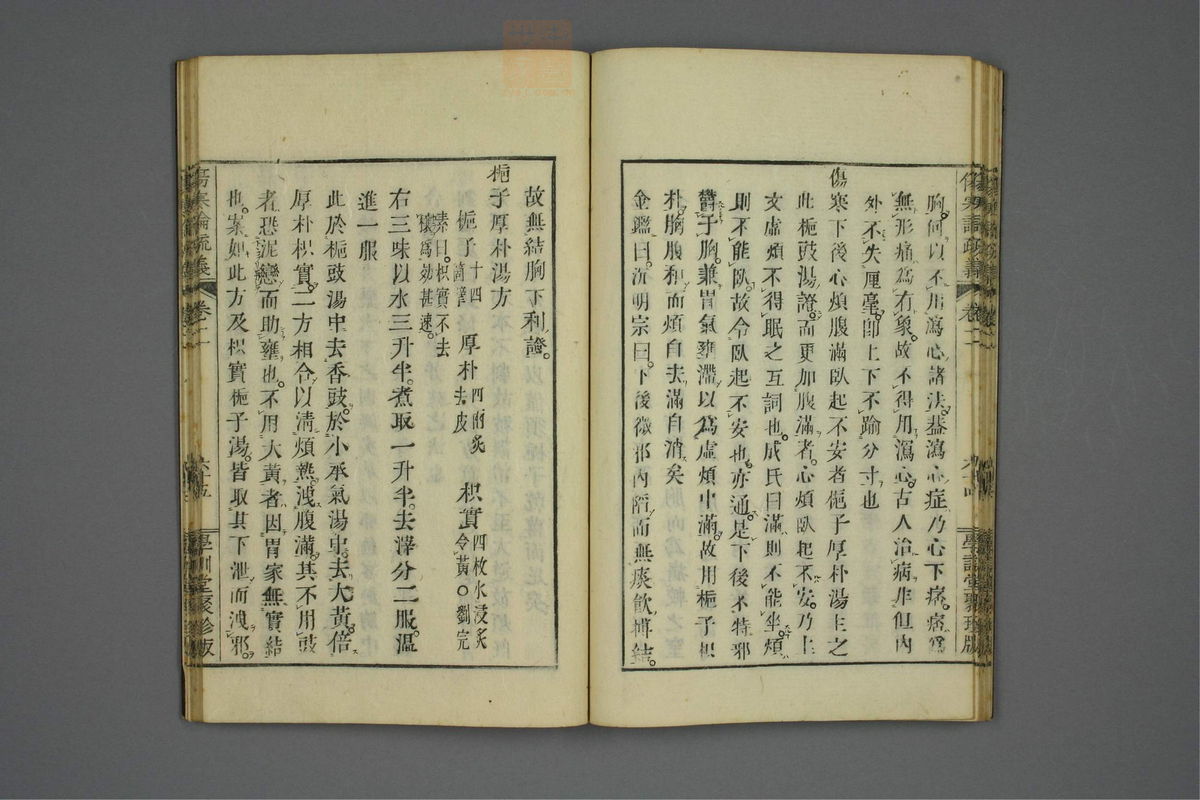 胸何以不用瀉心諸法蓋瀉心症乃心下痞痞爲
無形痛爲有象故不得用瀉心古人治病非但内
外不失厘毫卽上下不踰分寸也
傷寒下後心煩腹滿臥起不安者梔子厚朴湯主之
此梔豉湯證而更加腹滿者心煩臥起不安乃上
文虛煩不得眠之互詞也成氏曰滿則不能坐煩
則不能臥故令臥起不安也亦通是下後不特邪
欝于胸兼胃氣壅滯以爲虛煩中滿故用梔子枳
朴胸腹和而煩自去滿自消矣
金鑑曰沉明宗曰下後微邪內陷而無痰飮搏結
傷寒論疏義 卷二 學訓堂聚珍版
故無結胸下利證
梔子厚朴湯方
梔子十四箇擘 厚朴四兩炙去皮 枳實四枚水浸炙令黃○劉完
素曰枳實不去
穰爲効甚速
右三味以水三升半煮取一升半去滓分二服溫
進一服
此於梔豉湯中去香豉於小承氣湯中去大黃倍
厚朴枳實二方相合以清煩熱洩腹滿其不用豉
者恐泥戀而助壅也不用大黃者因胃家無實結
也案如此方及枳實梔子湯皆取其下泄而洩邪
傷寒論疏義 卷二 六十五 學訓堂聚珍版